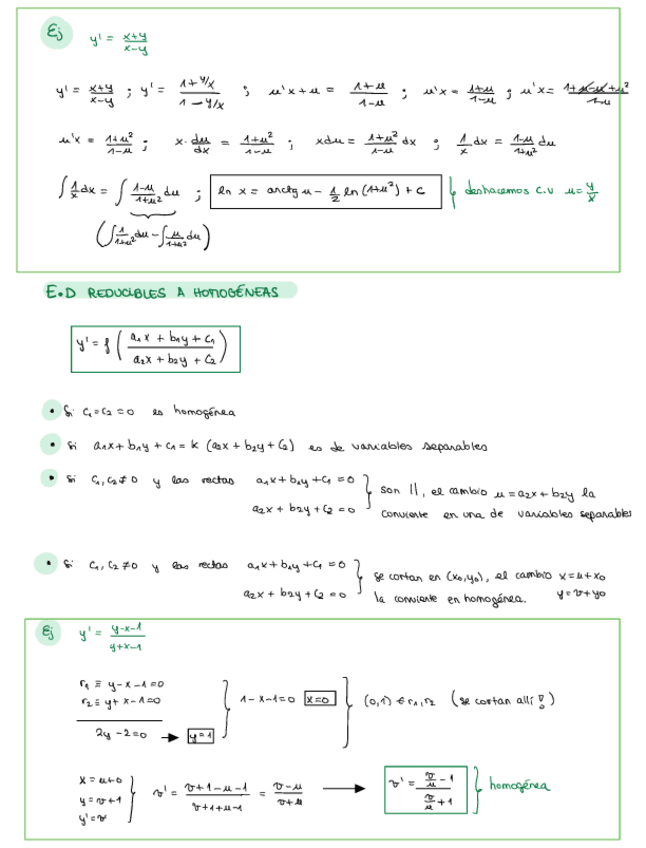 Ej y' = x+y/x-y
y' = x+y/x-y ; y' = 1+y/x / 1-y/x ; u'x+u = 1+u/1-u ; u'x = 1+u/1-u ; u'x = 1+u-u+u²/1-u
u'x = 1+u²/1-u ; x·du/dx = 1+u²/1-u ; xdu = 1+u²/1-u dx ; 1/x dx = 1-u/1+u² du
∫ 1/x dx = ∫ 1-u/1+u² du ; ln x = arctg u - 1/2 ln (1+u²) + C } deshacemos c.v u = y/x
(∫ 1/1+u² du - ∫ u/1+u² du)
E.D REDUCIBLES A HOMOGÉNEAS
y' = f ( a₁x + b₁y + c₁ / a₂x + b₂y + c₂ )
• Si c₁=c₂=0 es homogénea
• Si a₁x + b₁y + c₁ = k (a₂x + b₂y + c₂) es de variables separables
• Si c₁,c₂≠0 y las rectas a₁x + b₁y + c₁ = 0
a₂x + b₂y + c₂ = 0 } son ||, el cambio u = a₂x + b₂y la
convierte en una de variables separables
• Si c₁,c₂≠0 y las rectas a₁x + b₁y + c₁ = 0
a₂x + b₂y + c₂ = 0 } se cortan en (x₀,y₀), el cambio x = u + x₀
la convierte en homogénea. y = v + y₀
Ej y' = y-x-1/y+x-1
r₁ ≡ y-x-1=0
r₂ ≡ y+x-1=0 } 1-x-1=0 x=0 } (0,1) ∈ r₁,r₂ (se cortan allí!)
2y-2=0 → y=1
x = u+0
y = v+1
y' = v' } v' = v+1-u-1/v+1+u-1 = v-u/v+u → v' = v/u - 1 / v/u + 1 } homogénea